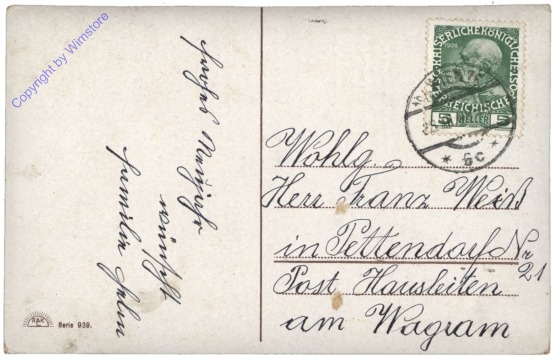 Copyright by Wimstore
Frohes Neujahr
wünscht
Familie
KAISERLICHE KÖNIGLICHE ÖSTER
1908
REICHISCHE
5 HELLER 5
* 6c *
Wohlg.
Herr Franz Weiß
in Pettendorf Nr
21
Post Hausleiten
am Wagram
Serie 939.